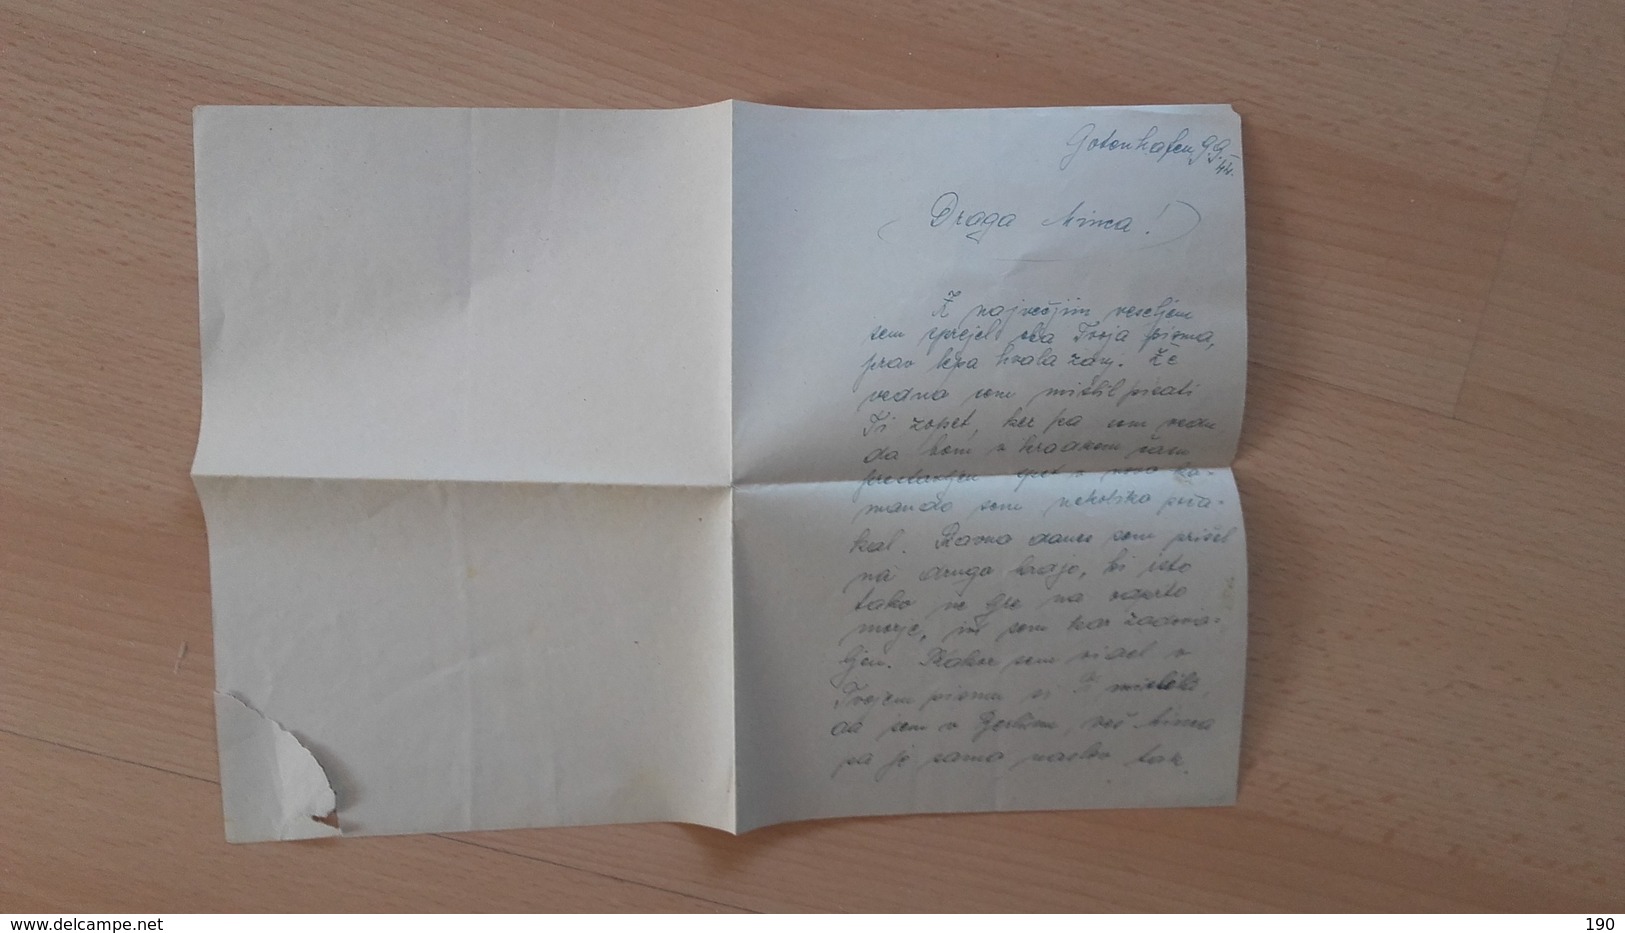 Gotenhafen, 9.9.44.
Draga Minca!
Z največjim veseljem
sem sprejel oba Tvoja pisma,
prav lepa hvala zanj. Že
vedno sem mislil pisati
Ti zopet, ker pa sem vedu
da bom v kradkem času
prestavljen spet v novo ko-
mando sem nekoliko poča-
kal. Ravno danes sem prišel
na drugo ladjo, ki isto
tako ne gre na odprto
morje, in sem kar zadovo-
ljen. Kakor sem videl v
Tvojem pismu si Ti mislila
da sem v Berlinu, veš Minca
pa je samo naslov tak.
delcampe.net
190